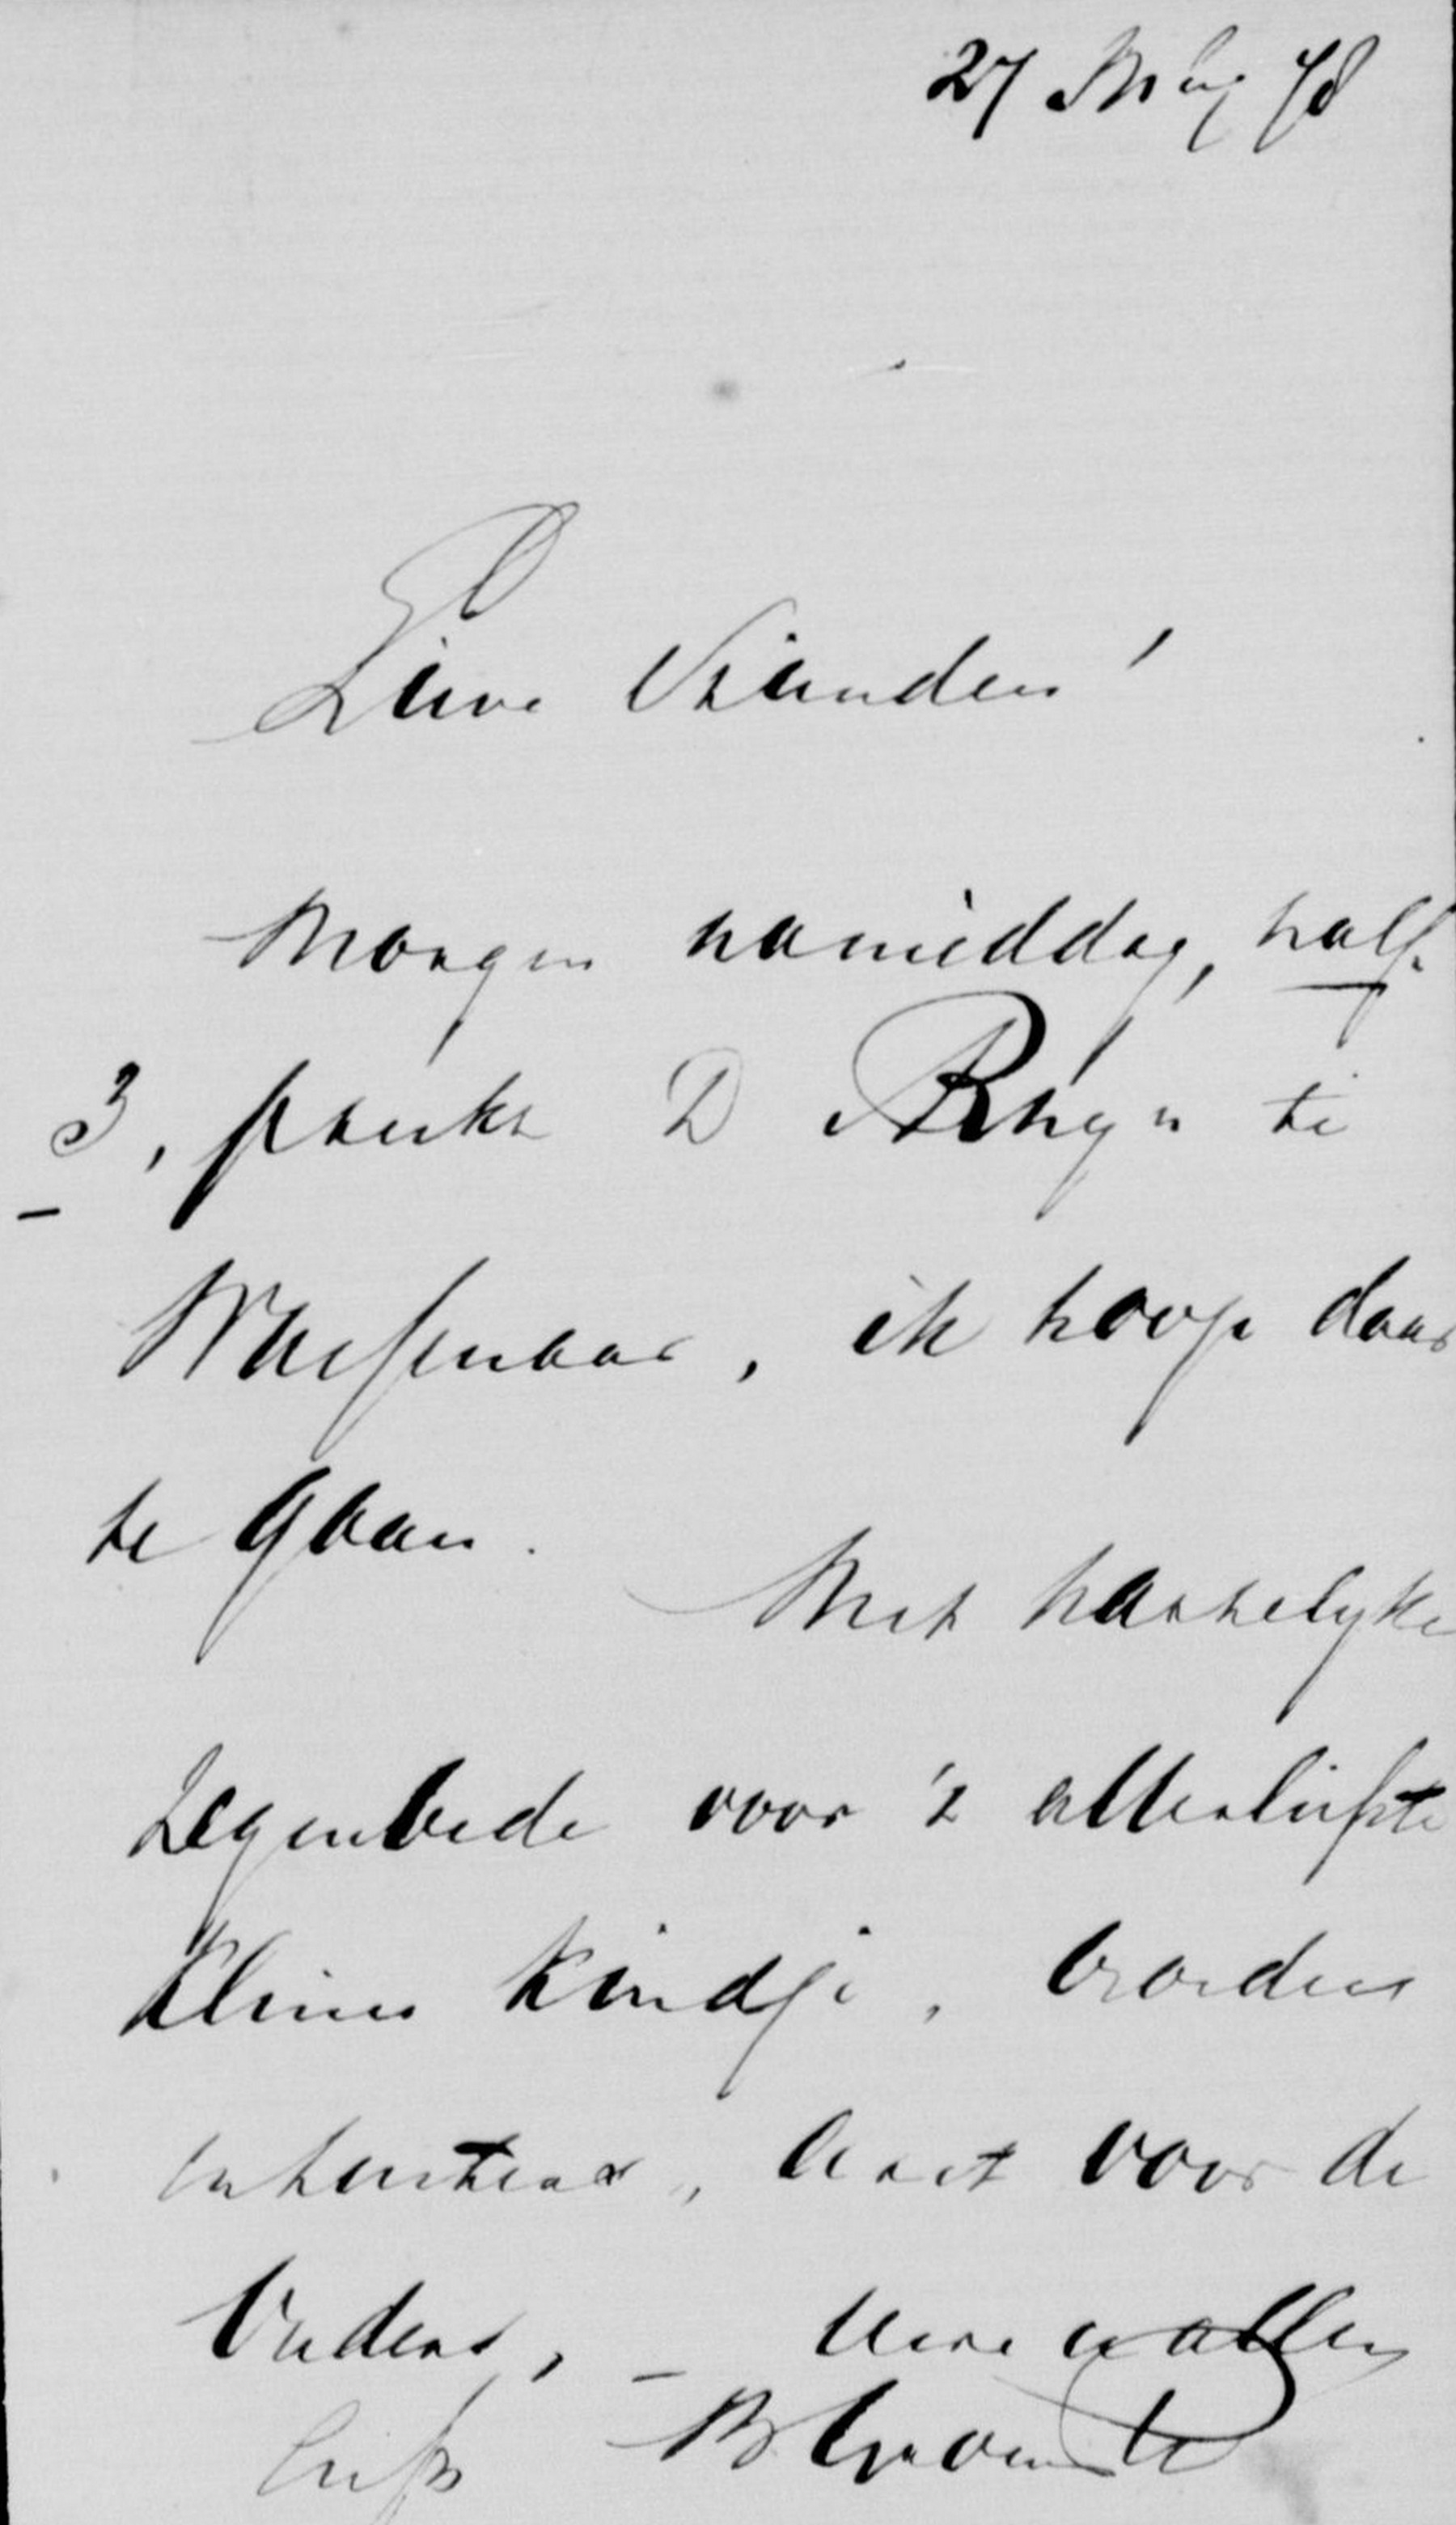 27 Mey 78
Lieve Vrienden!
Morgen namiddag, half
3, preekt D v Rhijn te
Wassenaar, ik hoop daar
te gaan.
Met hartelyke
zegenbede voor 't allerliefste
kleine kindje, broeders
en zusters, eerst voor de
Ouders, _ Uwe u allen
liefh